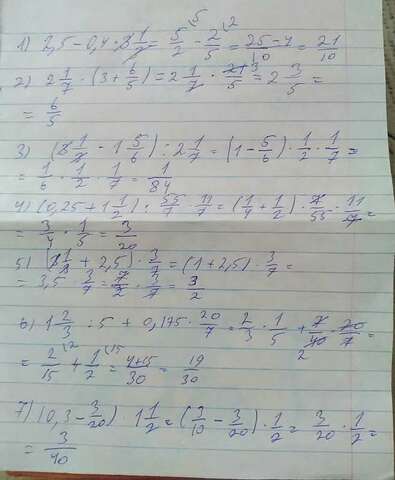 1) 2,5 - 0,4 · 3 1/2 = 5/2 \5 - 2/5 \2 = 25-4/10 = 21/10
2) 2 1/7 · (3 + 6/5) = 2 1/7 · 21/5 3 = 2 3/5 =
= 6/5
3) (2 1/2 - 1 5/6) : 2 1/7 = (1 - 5/6) · 1/2 · 1/7 =
= 1/6 · 1/2 · 1/7 = 1/84
4) (0,25 + 1 1/2) : 55/7 · 11/7 = (1/4 + 1/2) · 7/55 · 11/7 =
= 3/4 · 1/5 = 3/20
5) (2 1/2 + 2,5) · 3/7 = (1 + 2,5) · 3/7 =
= 3,5 · 3/7 = 7/2 · 3/7 = 3/2
6) 1 2/3 : 5 + 0,175 · 20/7 = 2/3 · 1/5 + 7/40 2 · 20/7 =
= 2/15 \2 + 1/2 \15 = 4+15/30 = 19/30
7) (0,3 - 3/20) 1 1/2 = (3/10 - 3/20) · 1/2 = 3/20 · 1/2 =
= 3/40